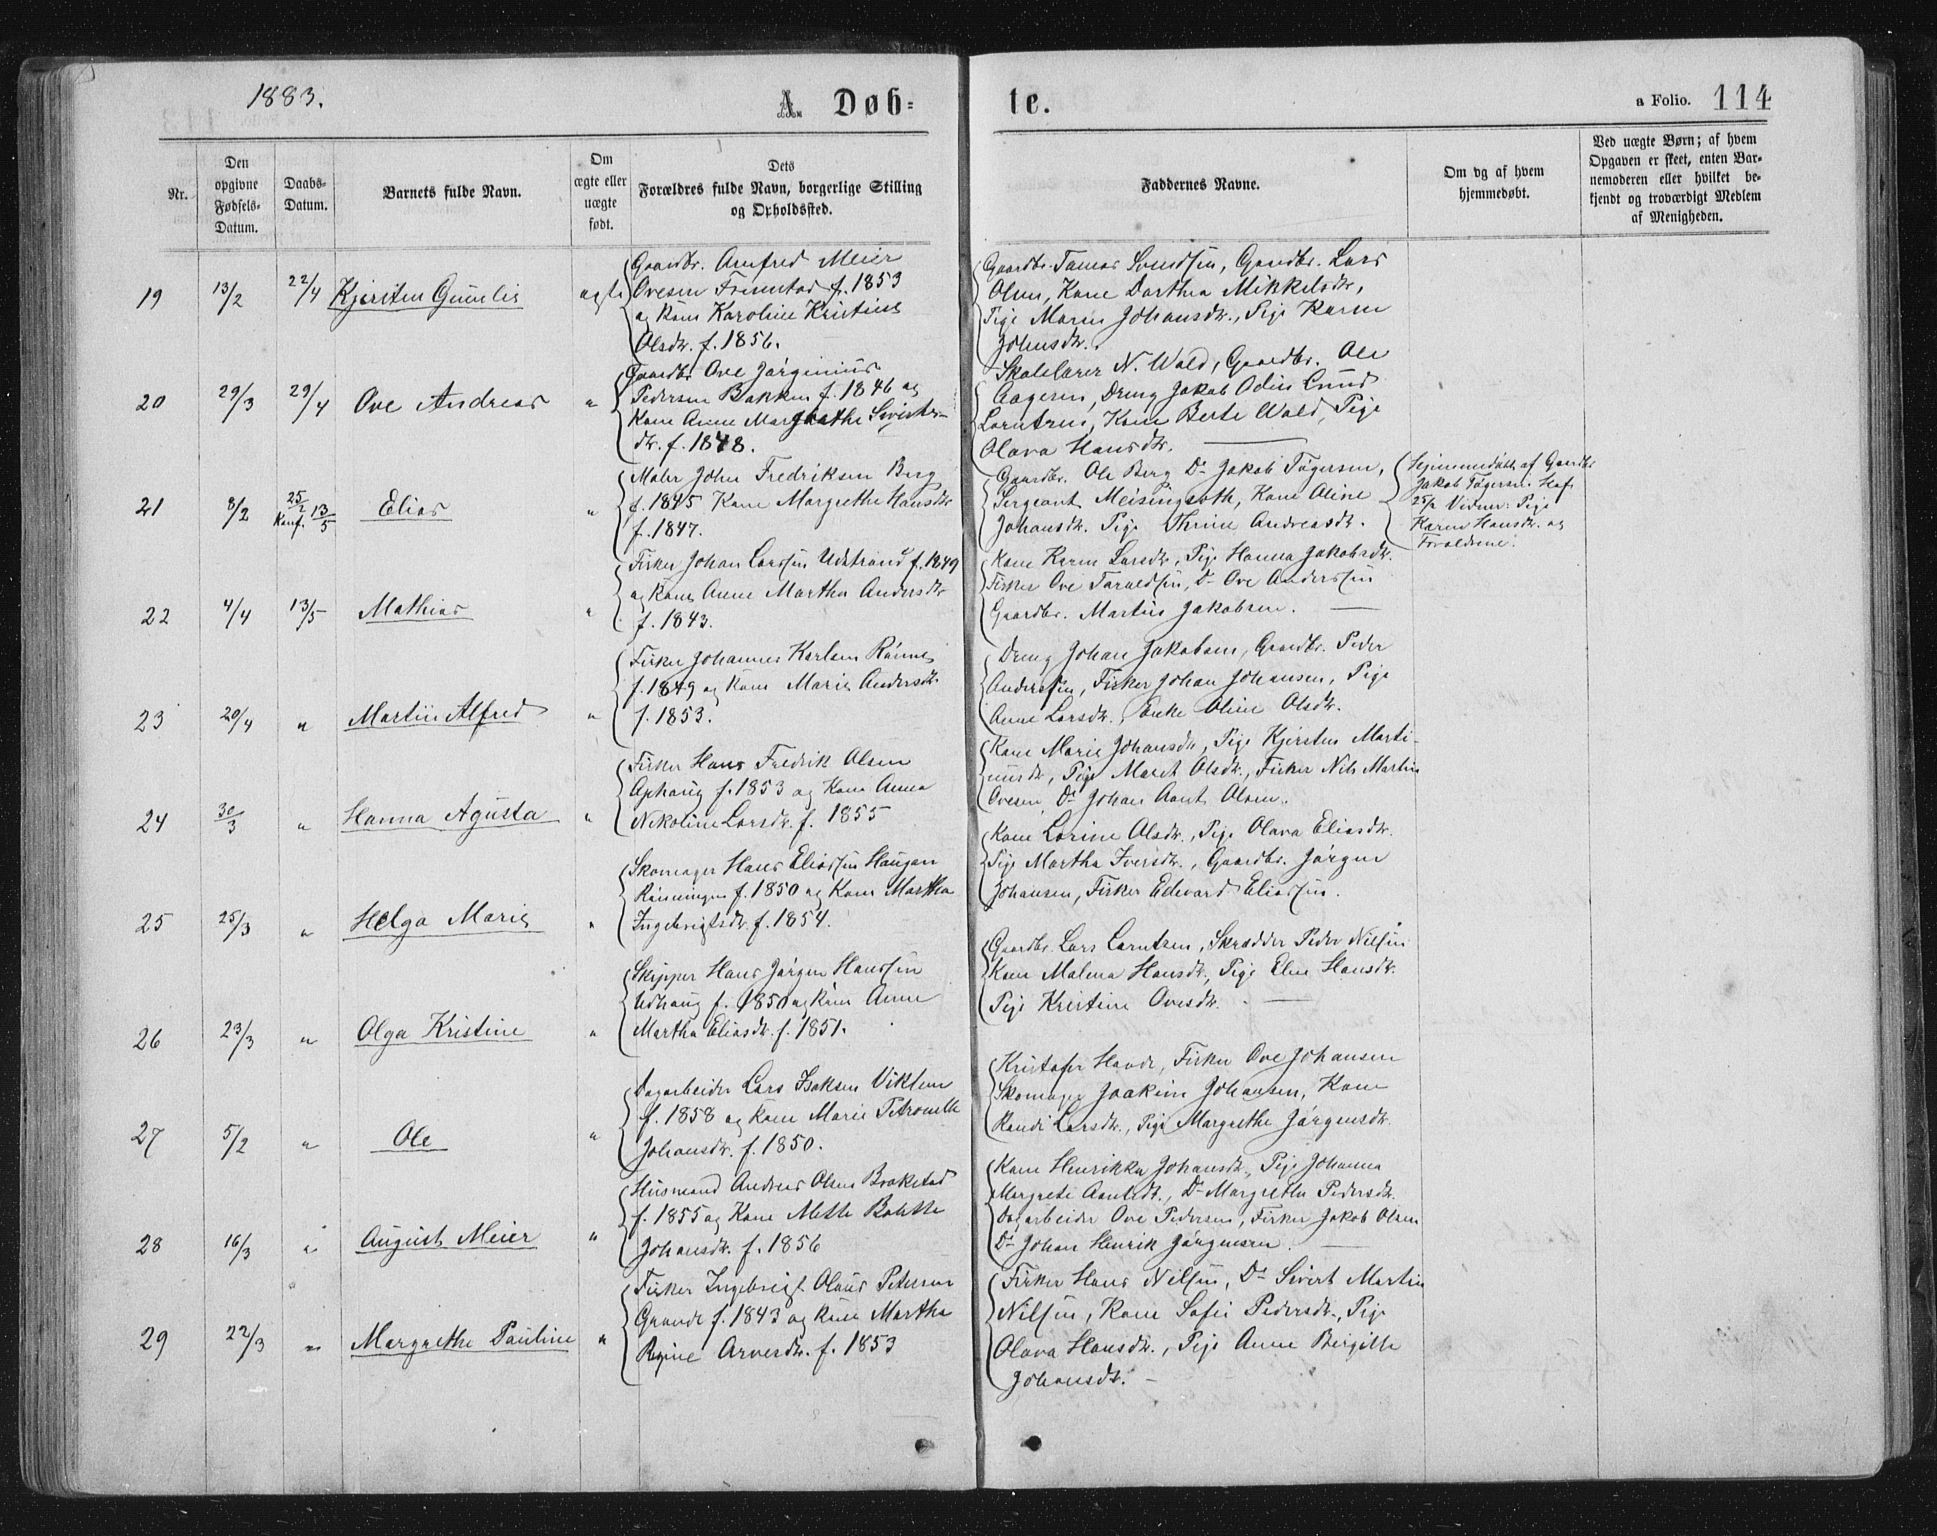 1883.
A. Døb-
te.
a Folio. 114
Nr.
Den opgivne Fødsels-Datum.
Daabs-Datum.
Barnets fulde Navn.
Om ægte eller uægte født.
Dets
Forældres fulde Navn, borgerlige Stilling
og Opholdssted.
Faddernes Navne.
Om og af hvem
hjemmedøbt.
Ved uægte Børn; af hvem
Opgaven er skeet, enten Bar-
nemoderen eller hvilket be-
kjendt og troværdigt Medlem
af Menigheden.
19 13/2 22/4 Kjersten Gunelie ægte
Gaardbr. Arnfred Meier
Ovesen f. 1853
og Kone Karoline Kristine
Olsdtr. f. 1856.
Gaardbr. Tamas Svendsen, Gaardbr. Lars
Olsen, Kone Dorthea Mikkelsdtr,
Pige Maren Johansdtr., Pige Karen
Johnsdtr.
20 29/3 29/4 Ove Andreas "
Gaardbr Ove Jørginius
Pedersen Bakken f. 1846 og
Kone Anne Margrethe Siverts-
dtr. f. 1848.
Skolelærer N. Wold, Gaardbr. Ole
Aagesen, Dreng Jakob Odin Lund
Lorntsen, Kone Berte Wold, Pige
Olava Hansdtr.
21 8/2 25/2 Konf. 13/5 Elias "
Maler John Fredriksen Berg
f. 1845 Kone Margrethe Hansdtr
f. 1847.
Gaardbr. Ole Berg Do Jakob Tøgersen,
Sergeant Meisingseth, Kone Oline
Johansdtr. Pige Thrine Andreasdtr.
Hjemmedøbt af Gaardbr
Jakob Tøgersen Hof
25/2 Vidner: Pige
Karen Hansdtr. og
Forældrene.
22 4/4 13/5 Mathias "
Fisker Johan Larssen Udstrand f. 1849
og Kone Anne Martha Andersdtr
f. 1843.
Kone Karen Larsdtr., Pige Hanna Jakobsdtr.
Fisker Ove Taraldsen, Do Ove Anderssen
Gaardbr. Martin Jakobsen.
23 20/4 " Martin Alfred "
Fisker Johannes Karlsen Rønne
f. 1849 og Kone Marie Andersdtr.
f. 1853.
Dreng Johan Jakobsen, Gaardbr. Peder
Anderssen, Fisker Johan Johansen, Pige
Anne Larsdtr., Enke Oline Olsdtr.
24 30/3 " Hanna Agusta "
Fisker Hans Fredrik Olsen
Ophaug f. 1853 og Kone Anna
Nekoline Larsdtr. f. 1855
Kone Marie Johansdtr, Pige Kjersten Marti-
nusdtr, Pige Maret Olsdtr., Fisker Nils Martin
Ovesen, Do Johan Aant Olsen.
25 25/3 " Helga Marie "
Skomager Hans Eliassen Haugan
Rønningen f. 1850 og Kone Martha
Ingebrigtsdtr. f. 1854.
Kone Lorine Olsdtr., Pige Olava Eliasdtr.
Pige Martha Iversdtr., Gaardbr. Jørgen
Johansen, Fisker Edevard Eliassen.
26 23/3 " Olga Kristine "
Skipper Hans Jørgen Hanssen
Udhaug f. 1850 og Kone Anne
Martha Eliasdtr. f. 1851.
Gaardbr. Lars Lorntsen, Skrædder Peder Nilsen
Kone Malena Hansdtr., Pige Elen Hansdtr.
Pige Kristine Ovesdtr.
27 5/2 " Ole "
Dagarbeider Lars Isaksen Viklem
f. 1858 og Kone Marie Petronelle
Johansdtr. f. 1850.
Kristofer Hovde, Fisker Ove Johansen
Skomager Joakim Johansen, Kone
Randi Larsdtr., Pige Margrethe Jørgensdtr.
28 16/3 " August Meier "
Husmand Andreas Olsen Brekstad
f. 1855 og Kone Mette Bolette
Johansdtr. f. 1856
Kone Henrikka Johansdtr., Pige Johanna
Margrete Aantsdtr., Do Margrethe Pedersdtr.
Dagarbeider Ove Pedersen, Fisker Jakob Olsen
Do Johan Henrik Jørgensen.
29 22/3 " Margrethe Pauline "
Fisker Ingebrigt Olaus Petersen
Grande f. 1843 og Kone Martha
Regine Arnesdtr. f. 1853
Fisker Hans Nilsen, Do Sivert Martin
Nilsen, Kone Sofie Pedersdtr., Pige
Olava Hansdtr., Pige Anne Bergitte
Johansdtr.